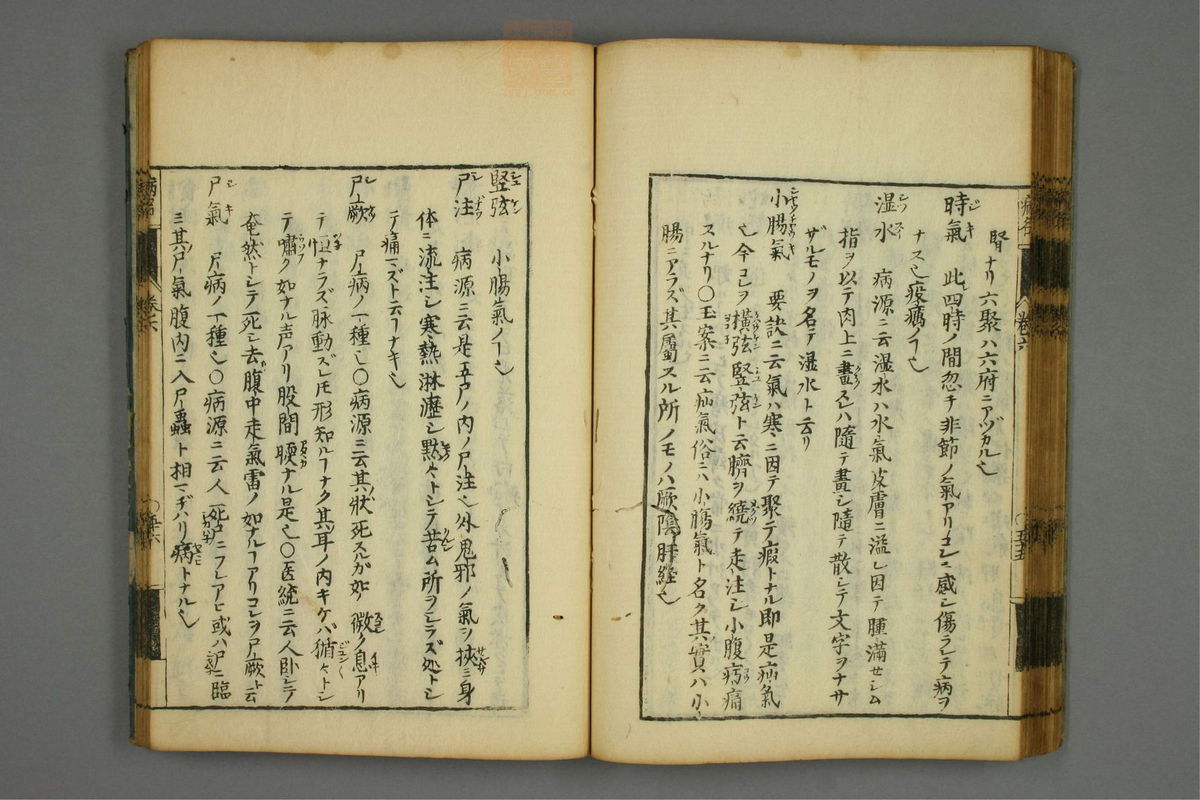 腎ナリ六聚ハ六府ニアヅカル也
時氣 此四時ノ間忽チ非節ノ氣アリコレニ感シ傷ラレテ病ヲ
ナス也疫癘ノヿ也
湿水 病源ニ云湿水ハ水氣皮膚ニ溢レ因テ腫満セシム
指ヲ以テ肉上ニ畫スレハ隨テ畫シ隨テ散シテ文字ヲナサ
ザルモノヲ名テ湿水ト云リ
小腸氣 要訣ニ云氣ハ寒ニ因テ聚テ瘕トナル即是疝氣
也今コレヲ橫弦竪弦ト云臍ヲ繞テ走注シ小腹㽲痛
スルナリ〇玉案ニ云疝氣俗ニハ小腸氣ト名ク其實ハ小
腸ニアラズ其屬スル所ノモノハ厥陰肝經也
竪弦 小腸氣ノヿ也
尸注 病源ニ云是五尸ノ内ノ尸注也外鬼邪ノ氣ヲ挾ミ身
体ニ流注シ寒熱淋瀝シ黙々トシテ苦ム所ヲシラズ処トシ
テ痛マズト云フナキ也
尸厥 尸病ノ一種也〇病源ニ云其狀死スルガ如ク微ク息アリ
テ恒ナラズ脉動ズレ𪜈形知ルヿナク其耳ノ内キケバ循々トシ
テ嘯ク如ナル声アリ股間煖ナル是也〇医統ニ云人卧シテ
奄然トシテ死シ去ガ腹中走氣雷ノ如ナルヿアリコレヲ尸厥ト云
尸氣 尸病ノ一種也〇病源ニ云人死尸ニフレアヒ或ハ尸ニ臨
ミ其尸氣腹内ニ入尸蟲ト相マヂハリ病トナル也